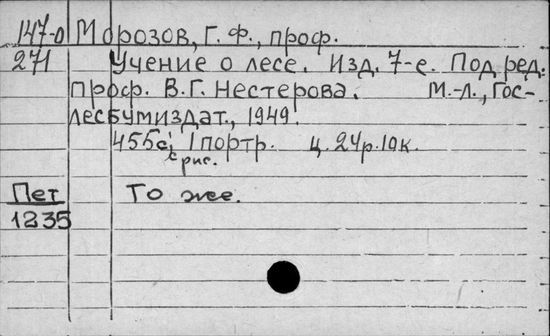 147-0 Морозов, Г. Ф., проф.
271 Учение о лесе. Изд. 7-е. Под ред.
проф. В.Г. Нестерова. М.-л., Гос-
лесбумиздат., 1949.
455с; 1 портр. ц. 24р. 10к.
с рис.
Пет То же.
1235